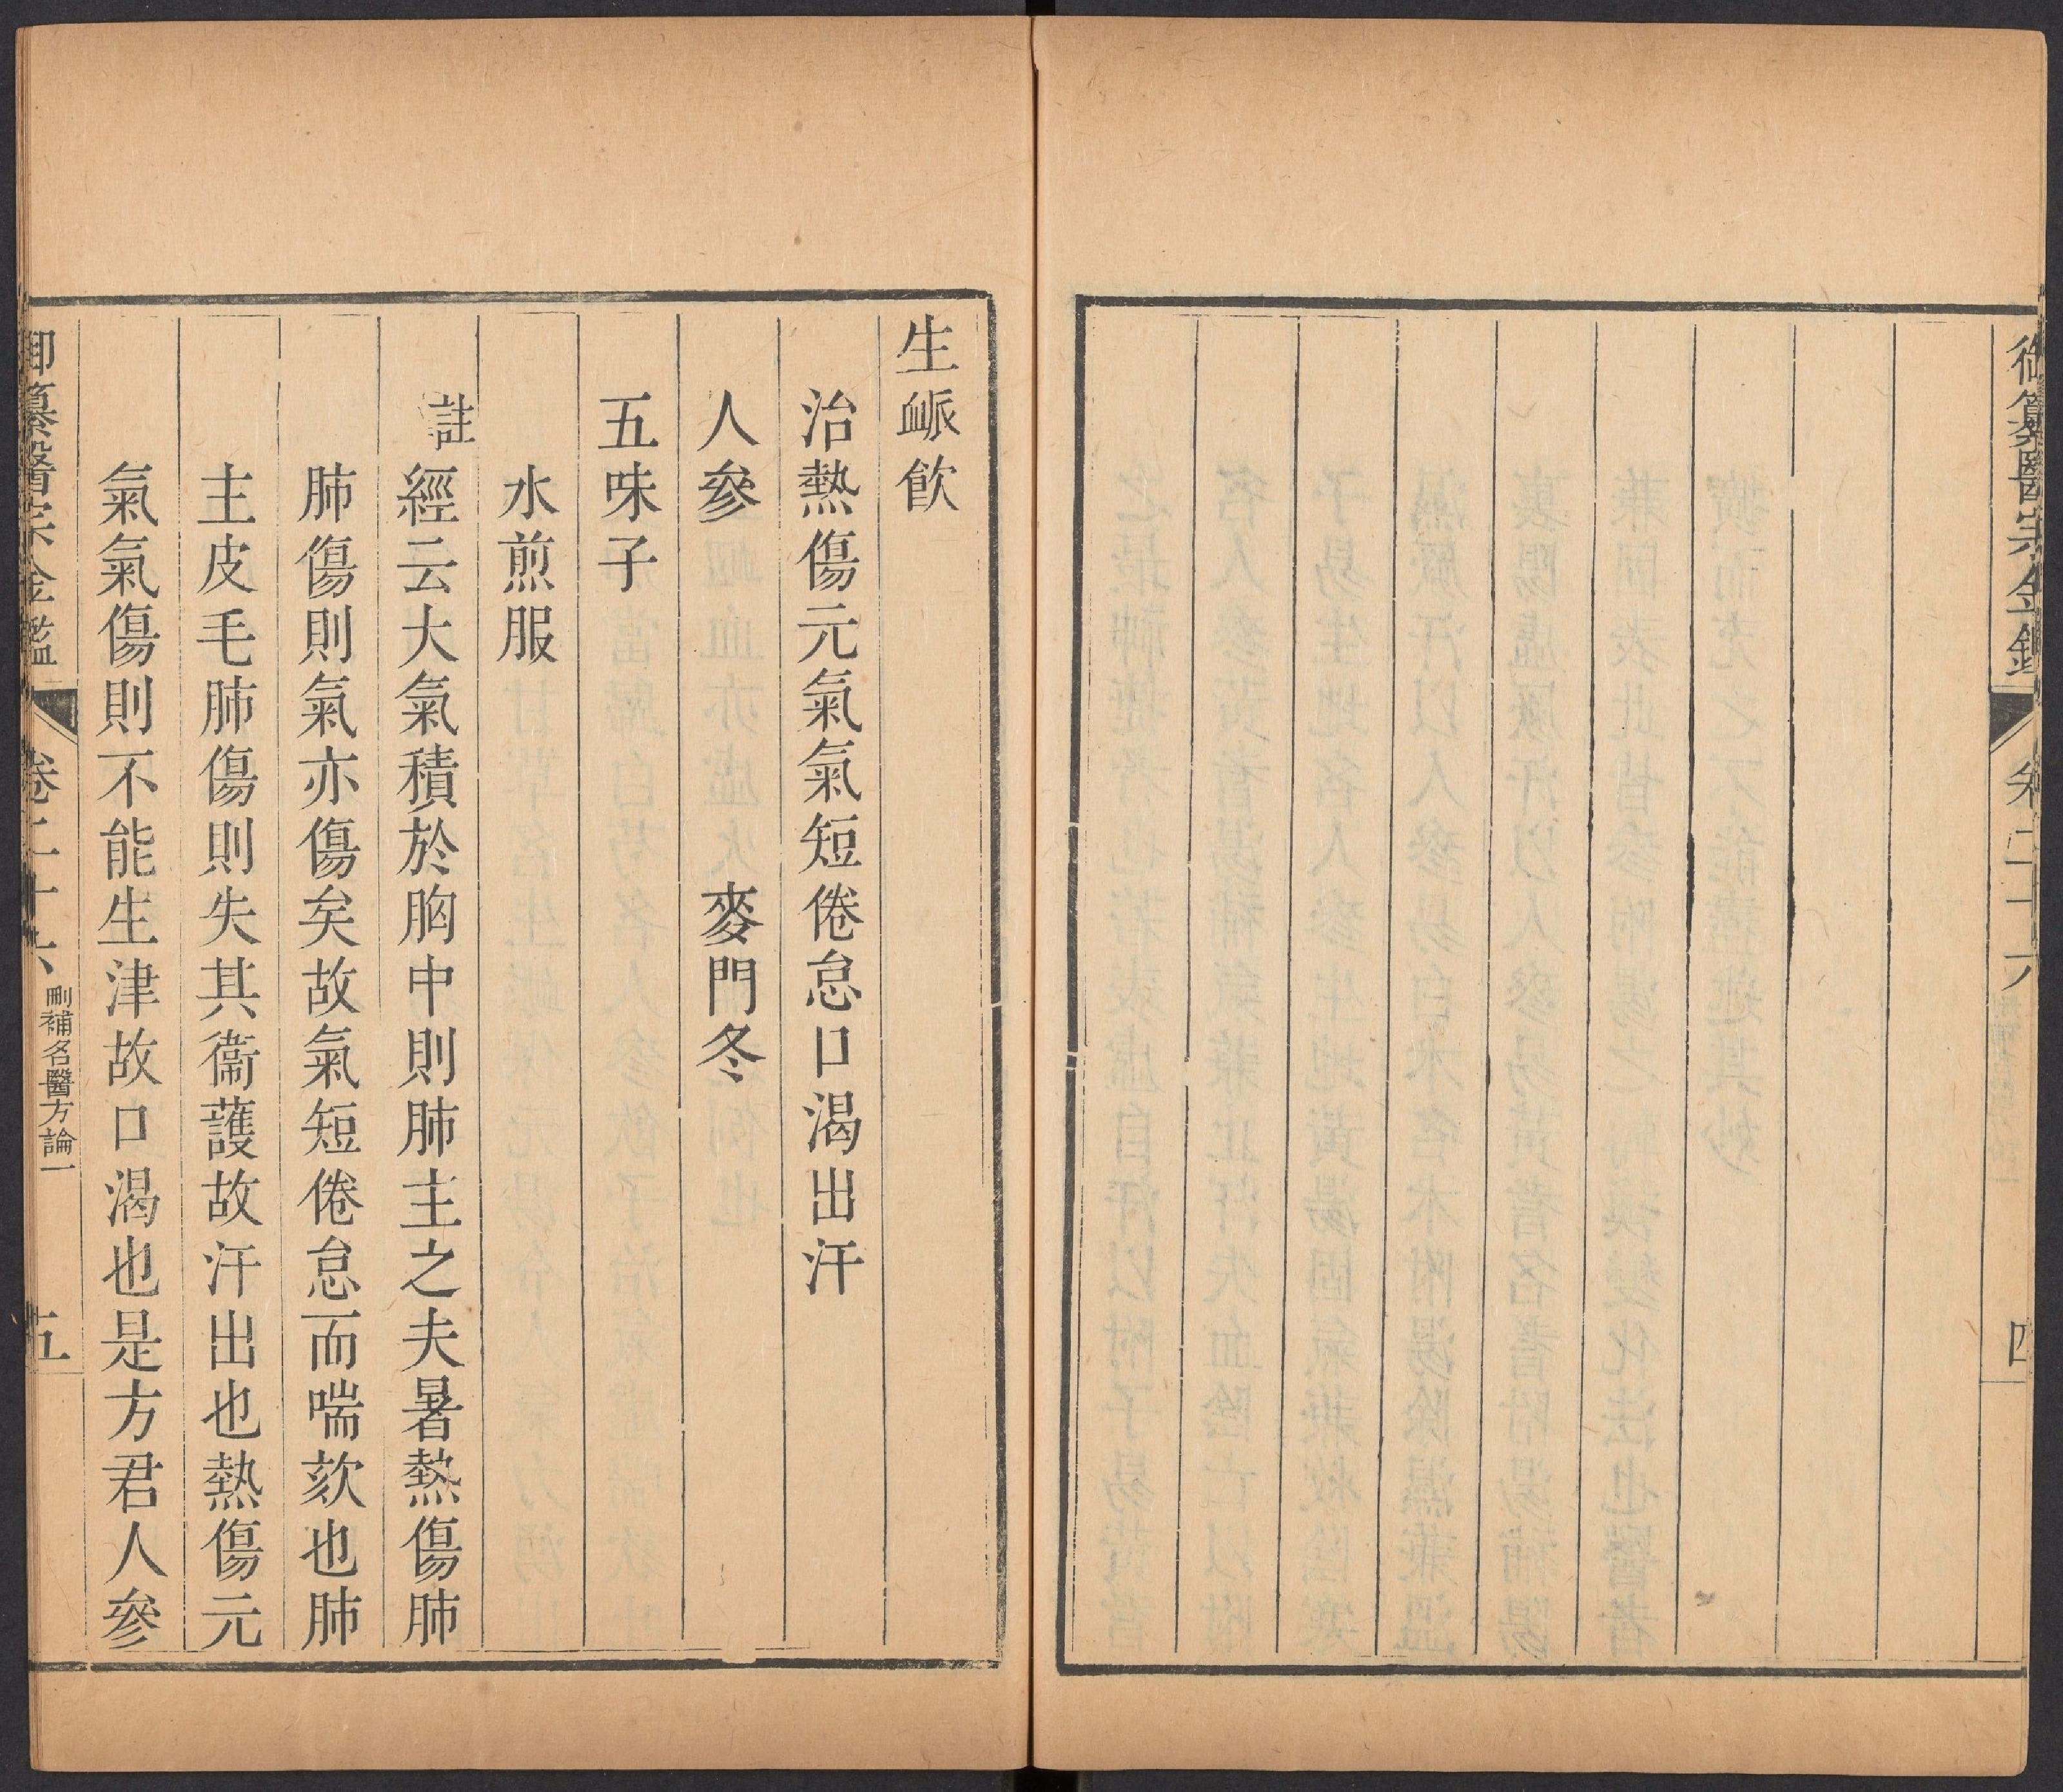 御纂醫宗金鑑
卷二十六
四
生衇飲
治熱傷元氣氣短倦怠口渴出汗
人參 麥門冬
五味子
水煎服
註經云大氣積於胸中則肺主之夫暑熱傷肺
肺傷則氣亦傷矣故氣短倦怠而喘欬也肺
主皮毛肺傷則失其衞護故汗出也熱傷元
氣氣傷則不能生津故口渴也是方君人參
御纂醫宗金鑑 卷二十六 刪補名醫方論一 五